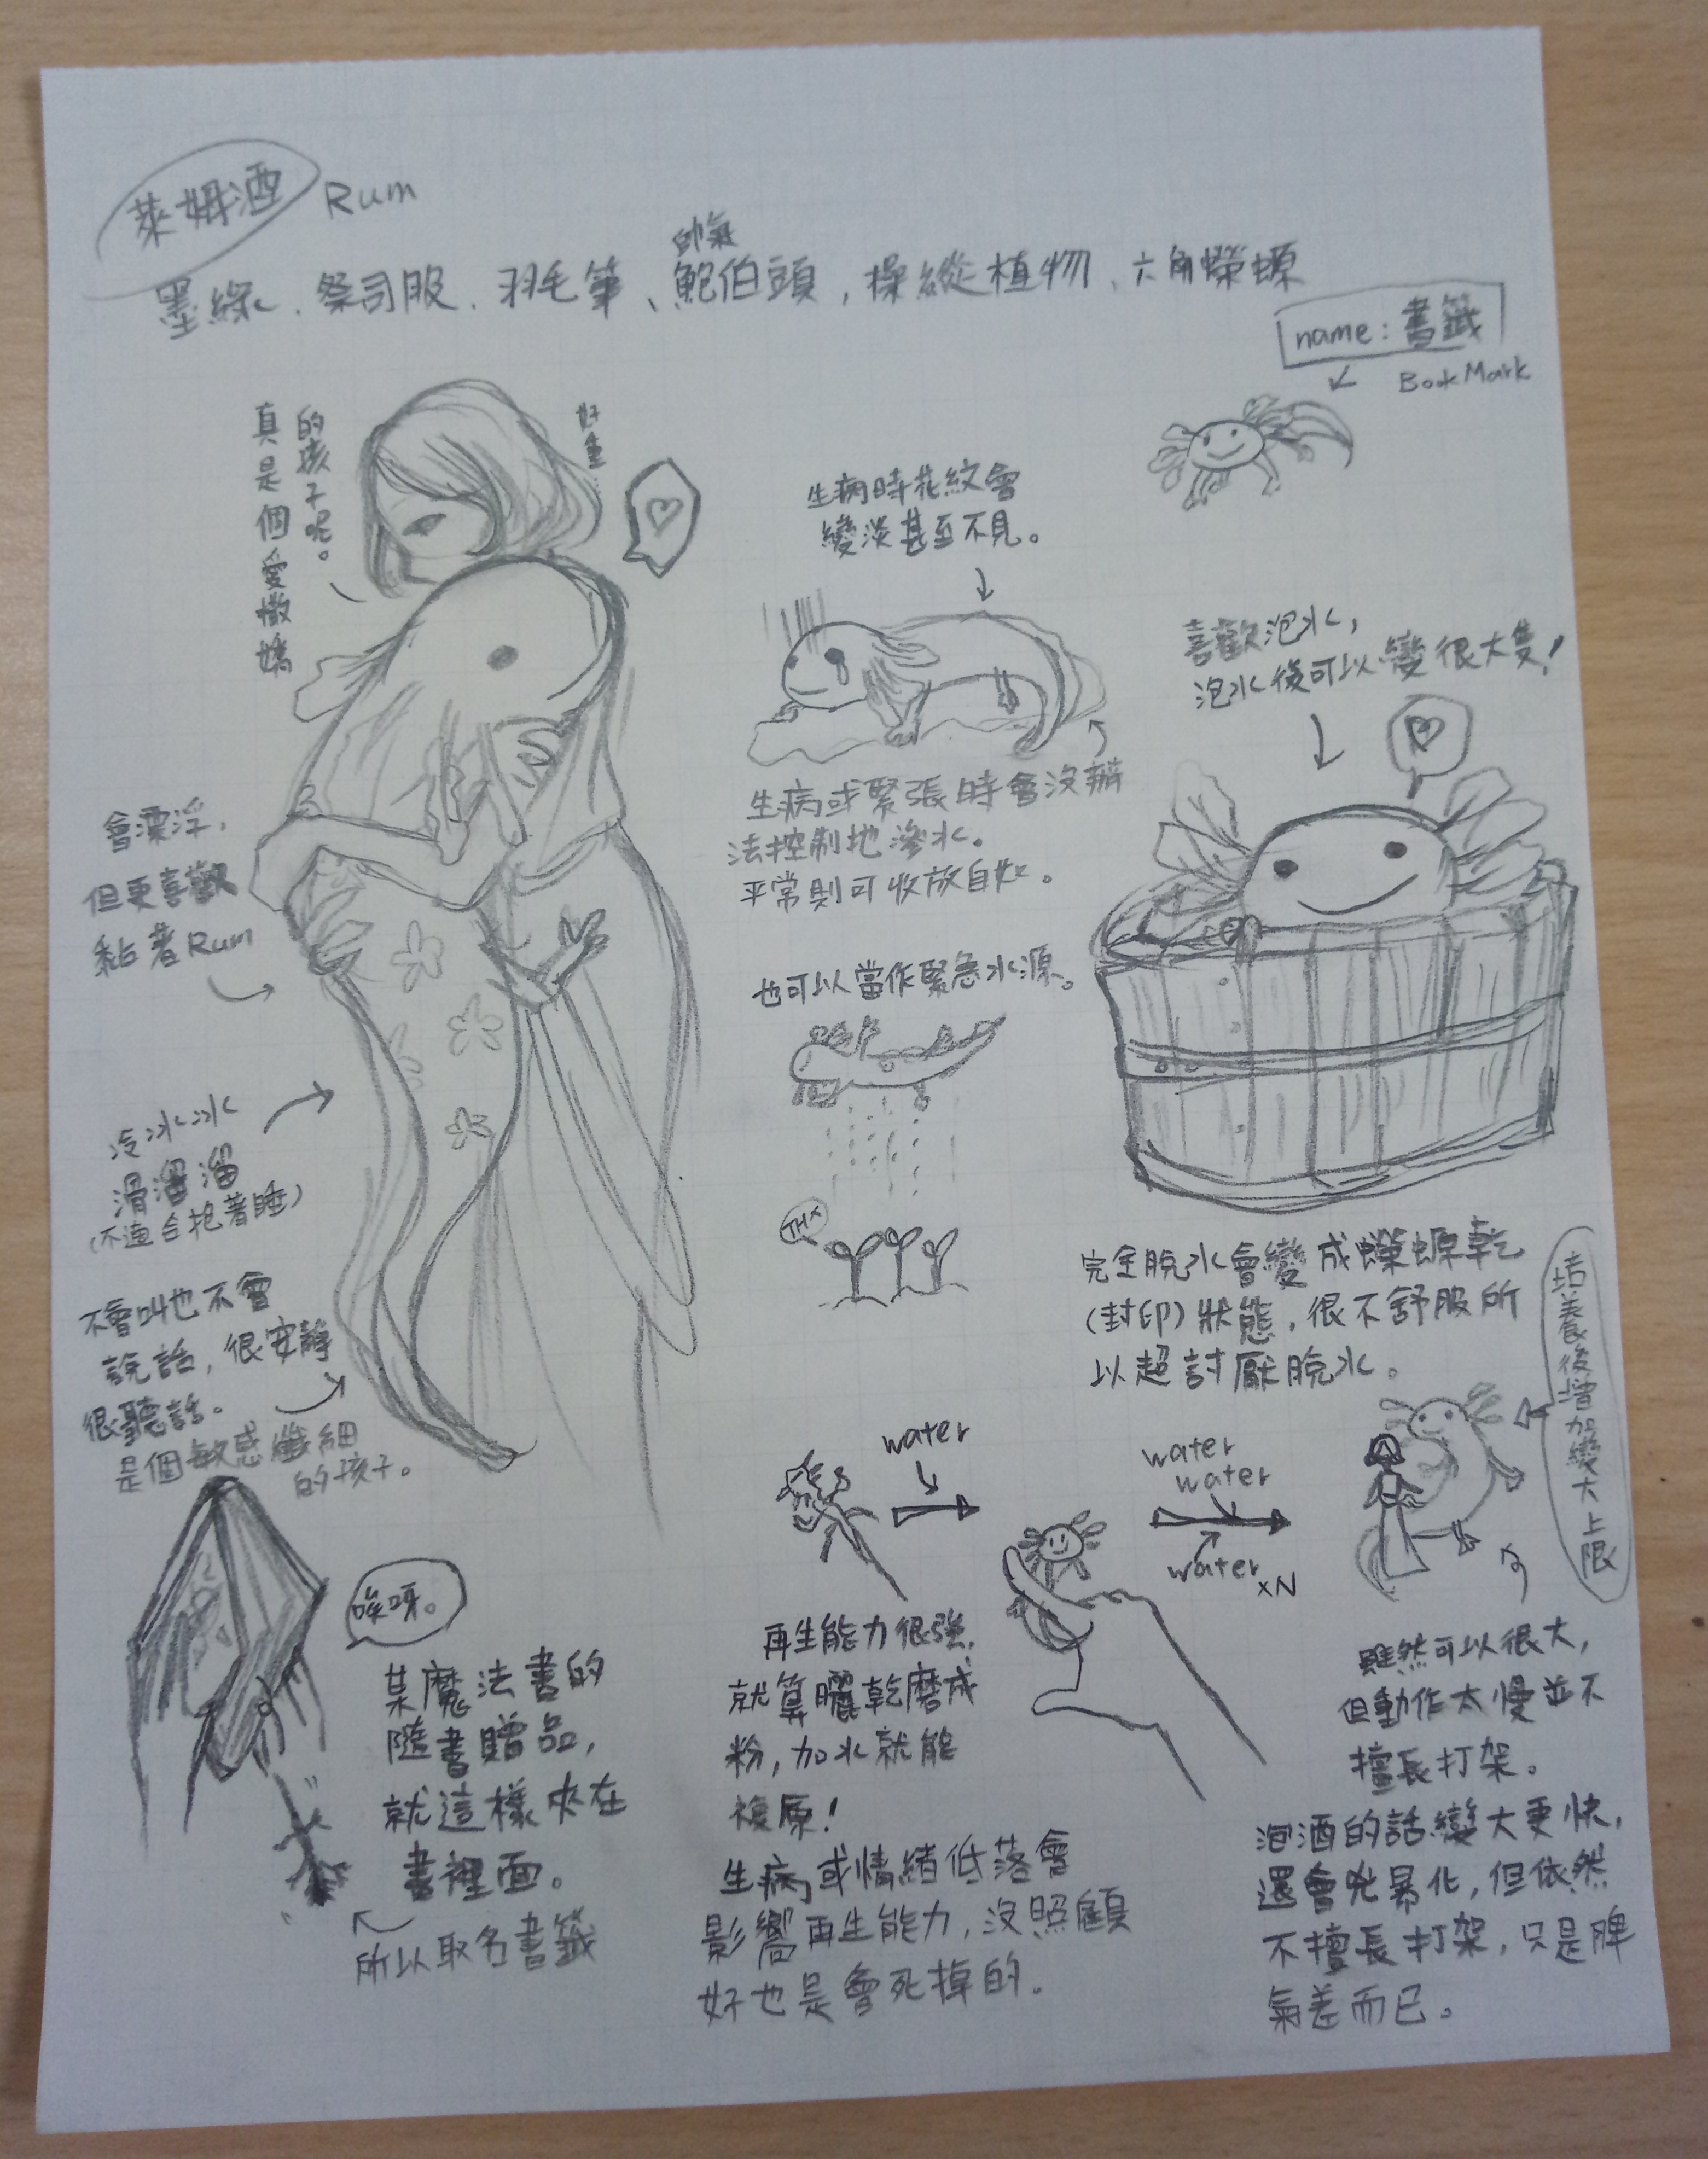 萊姆酒 Rum
帥氣
墨綠、祭司服、羽毛筆、鮑伯頭，操縱植物、六角蠑螈
name：書籤
BookMark
真是個愛撒嬌
的孩子呢。
好重…
生病時花紋會
變淡甚至不見。
喜歡泡水，
泡水後可以變很大隻！
生病或緊張時會沒辦
法控制地滲水。
平常則可收放自如。
會漂浮，
但更喜歡
黏著Rum
也可以當作緊急水源。
冷冰冰
滑溜溜
（不適合抱著睡）
THX
不會叫也不會
說話，很安靜
很聽話。
是個敏感纖細
的孩子。
完全脫水會變成蠑螈乾
（封印）狀態，很不舒服所
以超討厭脫水。
培養後增加變大上限
water
water
water
water xN
唉呀。
某魔法書的
隨書贈品，
就這樣夾在
書裡面。
所以取名書籤
再生能力很強，
就算曬乾磨成
粉，加水就能
複原！
生病或情緒低落會
影響再生能力，沒照顧
好也是會死掉的。
雖然可以很大，
但動作太慢並不
擅長打架。
泡酒的話變大更快，
還會兇暴化，但依然
不擅長打架，只是脾
氣差而已。